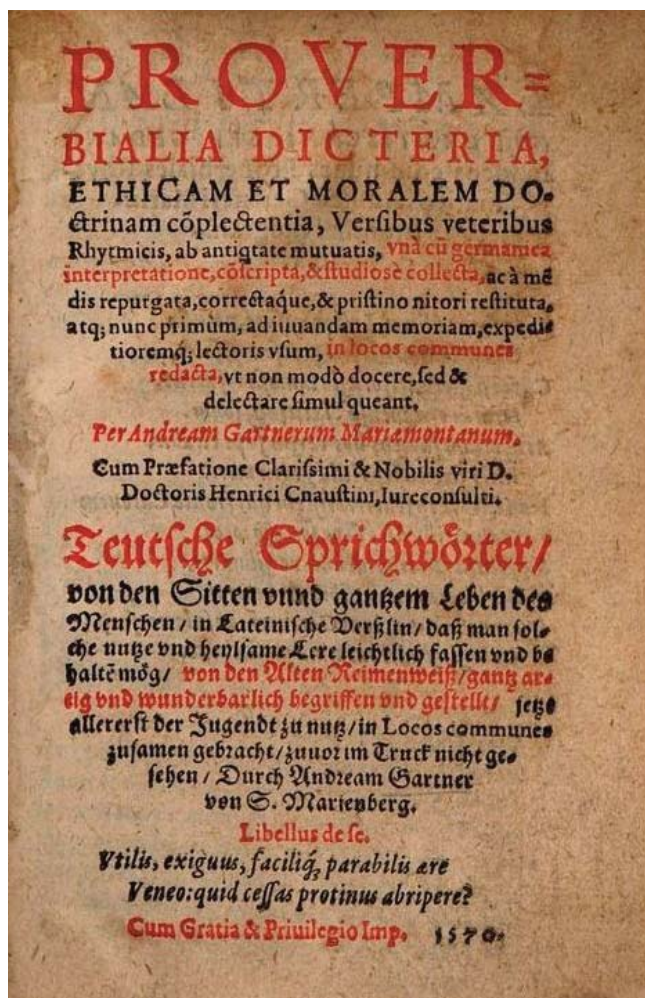 PROVER=
BIALIA DICTERIA,
ETHICAM ET MORALEM DO-
ctrinam cõplectentia, Versibus veteribus
Rhytmicis, ab antiqtate mutuatis, vnà cũ germanica
interpretatione, cõscripta, & studiosè collecta, ac à mẽ
dis repurgata, correctaq́ue, & pristino nitori restituta,
atq; nunc primùm, ad iuuandam memoriam, expedi-
tioremq́; lectoris vsum, in locos communes
redacta, vt non modò docere, sed &
delectare simul queant.
Per Andream Gartnerum Mariæmontanum.
Cum Præfatione Clarissimi & Nobilis viri D.
Doctoris Henrici Cnaustini, Iureconsulti.
Teutsche Sprichwörter/
von den Sitten vnnd gantzem Leben des
Menschen / in Lateinische Verßlin / daß man sol-
che nutze vnd heylsame Lere leichtlich fassen vnd be
haltẽ mög / von den Alten Reimenweiß / gantz ar-
tig vnd wunderbarlich begriffen vnd gestellt / jetzt
allererst der Jugendt zu nutz / in Locos communes
zusamen gebracht / zuuor im Truck nicht ge-
sehen / Durch Andream Gartner
von S. Marienberg.
Libellus de se.
Vtilis, exiguus, faciliq́; parabilis ære
Veneo: quid cessas protinus abripere?
Cum Gratia & Priuilegio Imp. 1570.